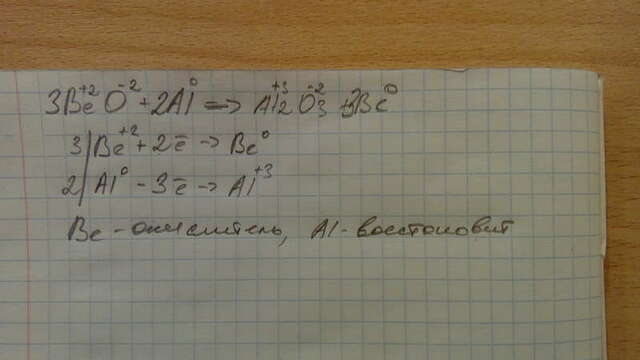 3Be⁺²O⁻² + 2Al⁰ => Al₂⁺³O₃⁻² + 3Be⁰
3| Be⁺² + 2ē → Be⁰
2| Al⁰ - 3ē → Al⁺³
Be - окислитель, Al - восстановит